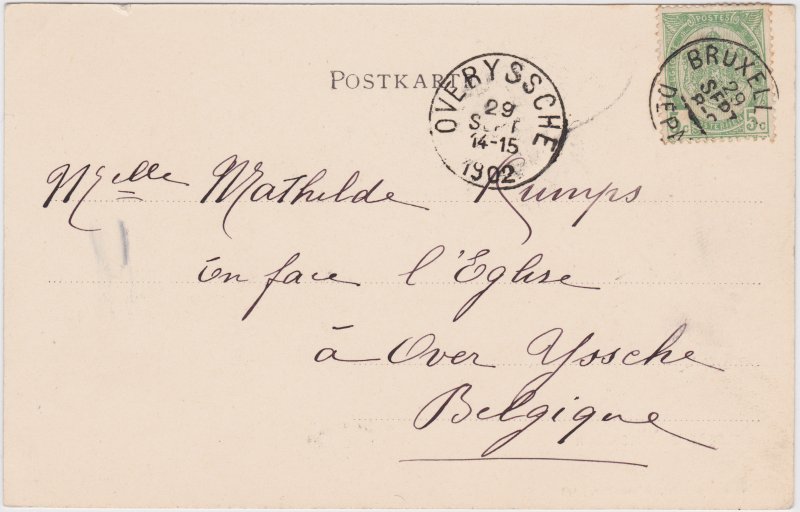 POSTES
BRUXELL
29
SEPT
DEPA
5c
POSTKART
OVERYSSCHE
29
SEPT
14-15
1902
Melle Mathilde Kumps
En face l'Eglise
à Over Yssche
Belgique